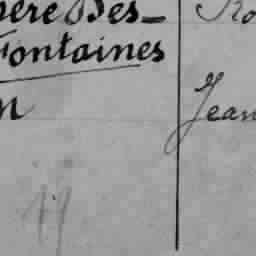 père Des_ Ro
Fontaines
n Jean